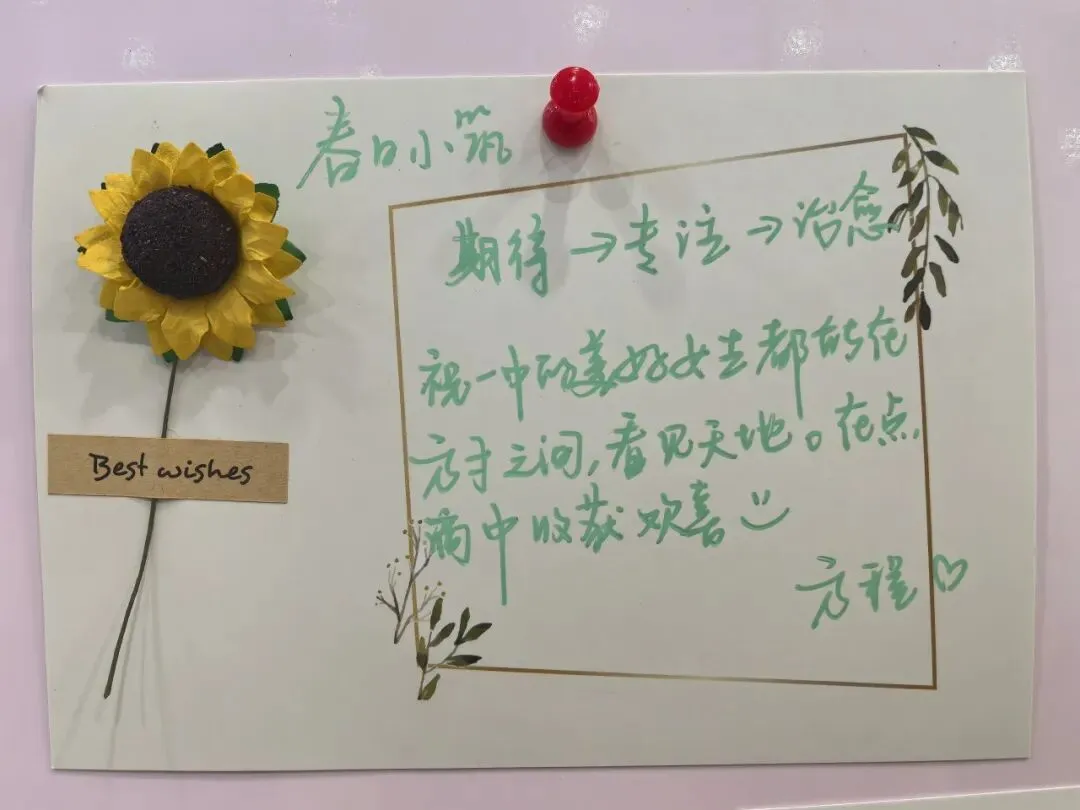 春日小筑
期待→专注→治愈
祝一中的美好女生都能在
方寸之间,看见天地。在点
滴中收获欢喜
方程♡
Best wishes